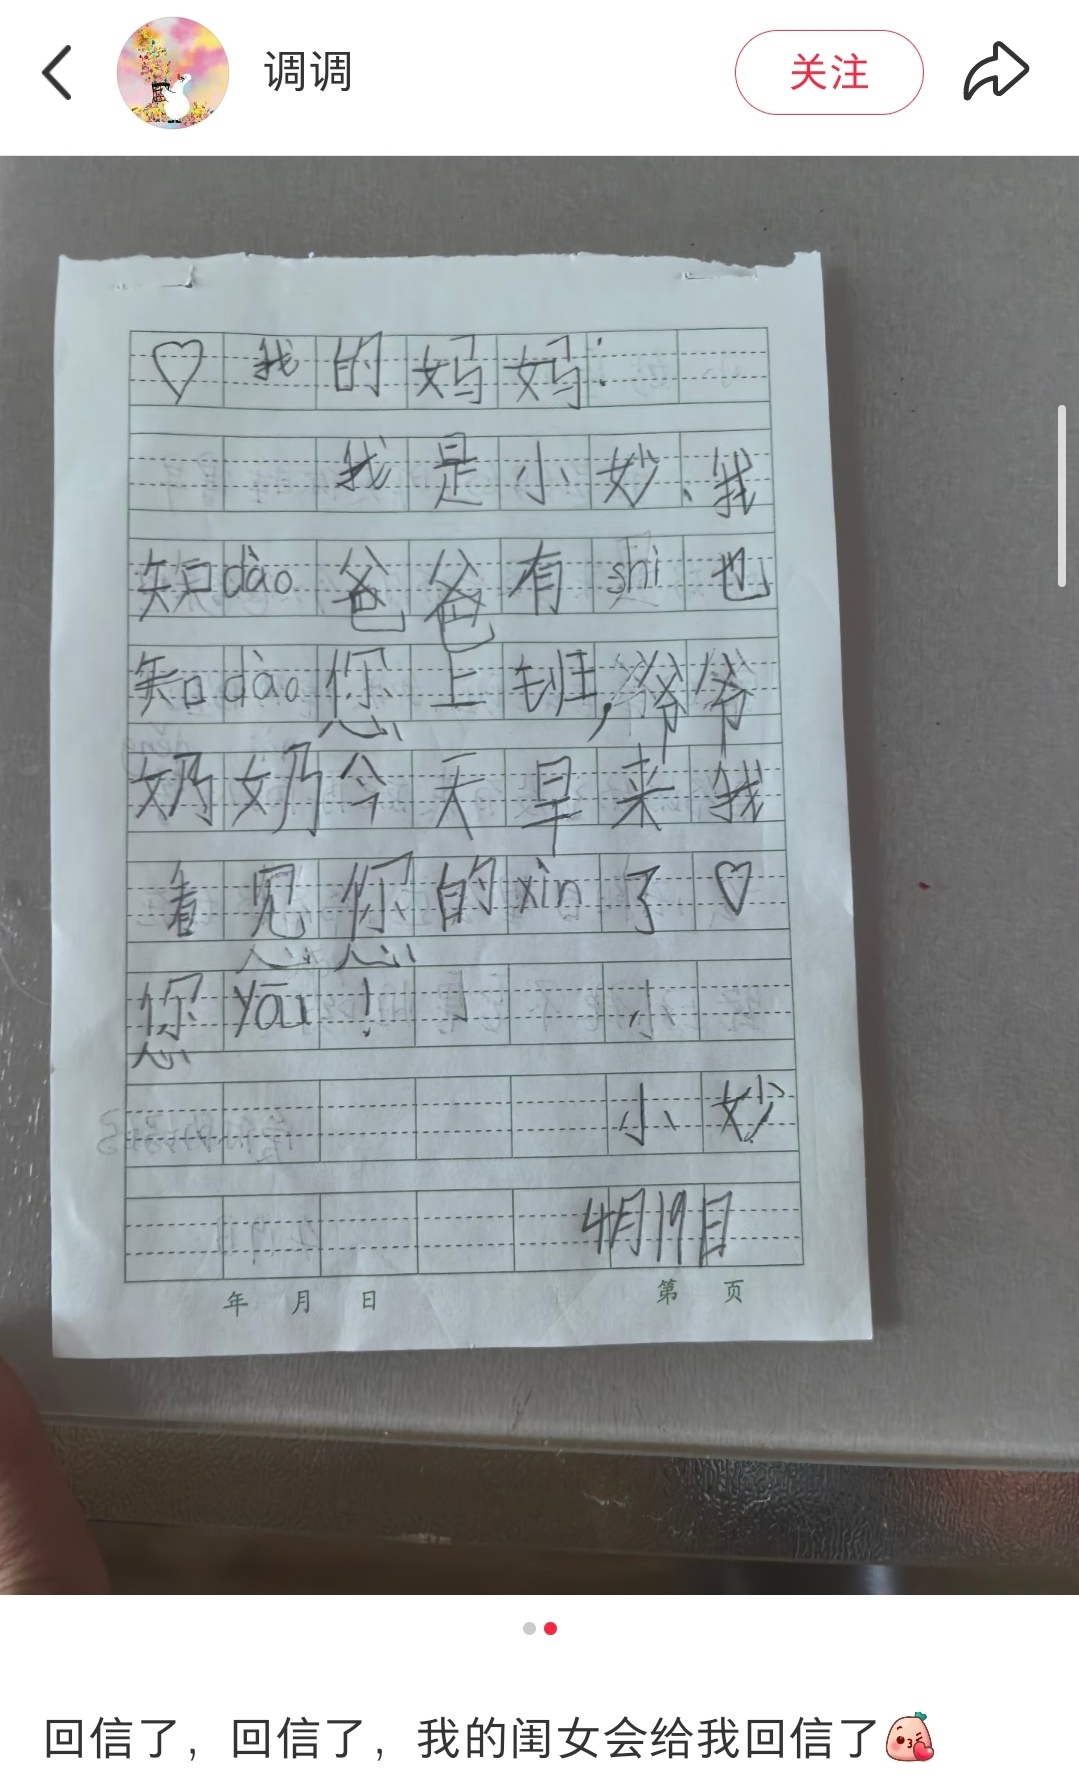 调调
关注
♡我的妈妈:
我是小妙、我
知dào爸爸有shì也
知dào您上班,爷爷
奶奶今天早来我
看见您的xìn了♡
您yāu!
小妙
4月19日
年 月 日 第 页
回信了，回信了，我的闺女会给我回信了